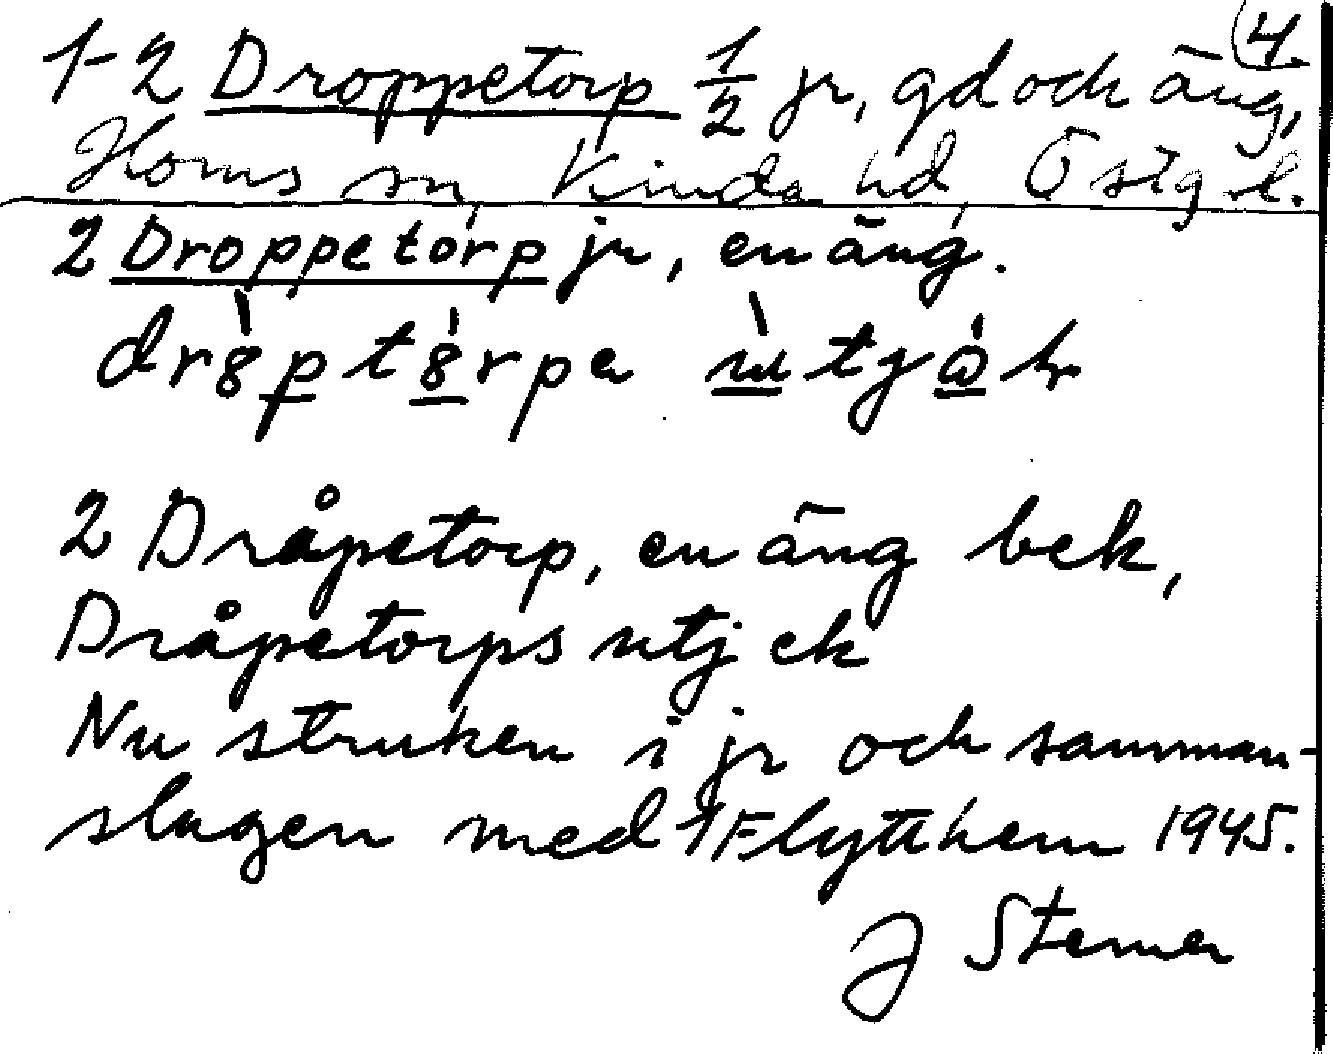 4.
1-2 Droppetorp 1/2 jr, gd och äng,
Horns sn, Kinda hd, Östg l.
2 Droppetorp jr, en äng.
2 Dråpetorp, en äng bek,
Dråpetorps utj ek
Nu struken i jr och samman-
slagen med 1 Flytthem 1945.
J Sterner